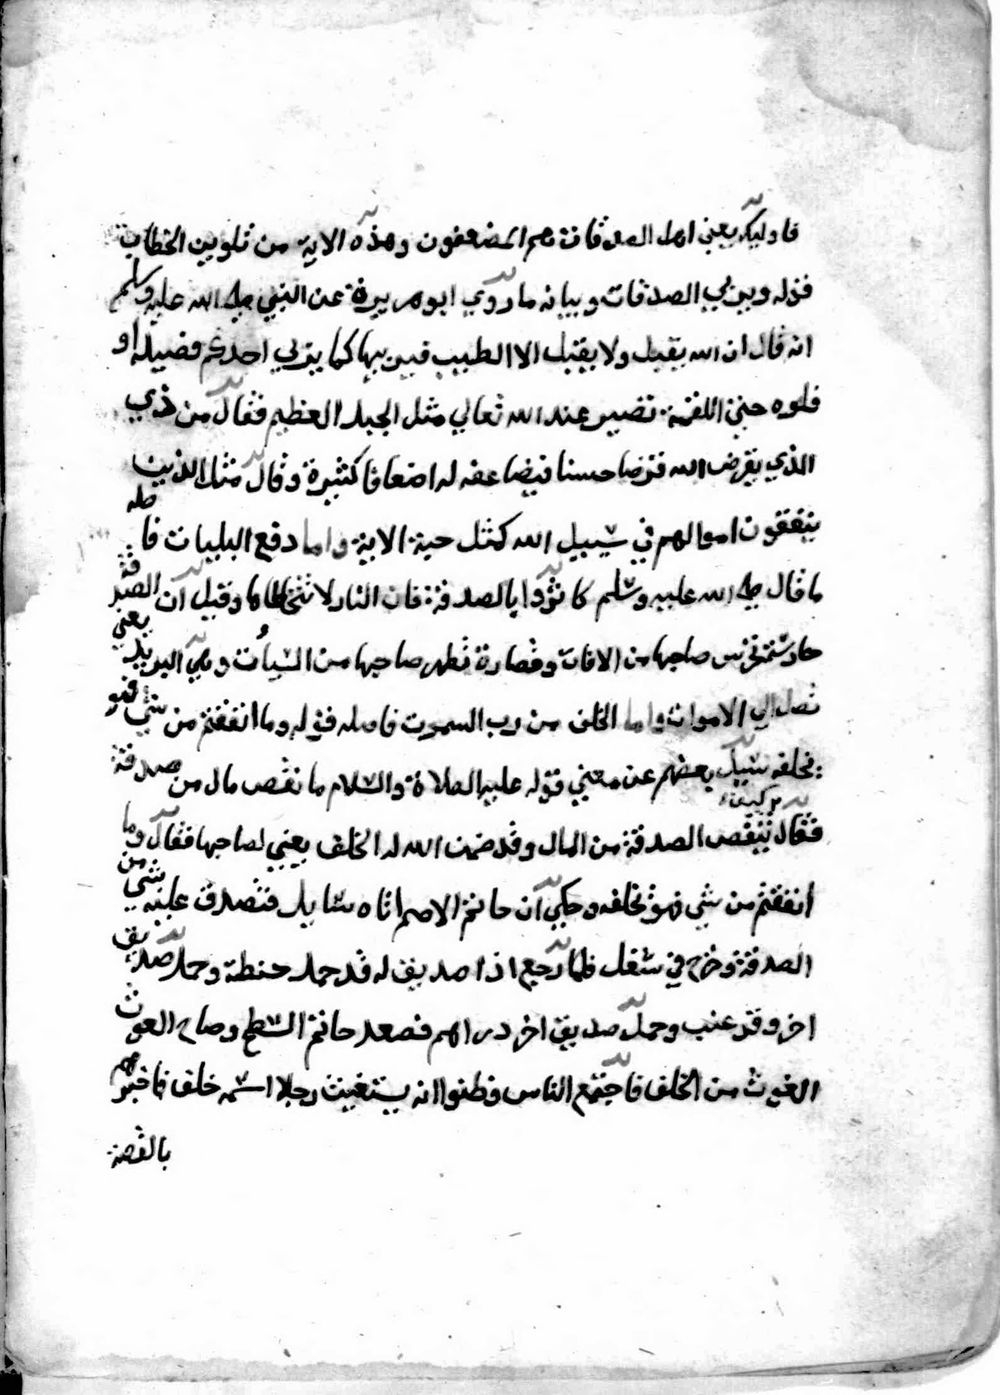 فاوليك يعني اهل الصدقات هم المضعفون وهذه الاية من تلوين الخطاب
قوله ويربي الصدقات وبيانه ما روي ابو هريرة عن النبي صلى الله عليه وسلم
انه قال ان الله يقبل ولا يقبل الا الطيب فيربيها كما يربي احدكم فصيله او
فلوه حتى اللقمة تصير عند الله تعالي مثل الجبل العظيم فقال من ذي
الذي يقرض الله قرضا حسنا فيضاعفه له اضعافا كثيرة وقال مثل الذين
ينفقون اموالهم في سبيل الله كمثل حبة الاية واما دفع البليات فا صله
ما قال صلى الله عليه وسلم بالصدقة فان النار لا وقيل ان الصدقة
صاحبها من الافات وقصارة تطهر صاحبها من السيات وهي البريد يعني
تصل الي الاموات واما الخلف من رب السموت فاصله قوله وما انفقتم من شي فهو
يخلفه سيل بعضهم عن معني قوله عليه الصلاة والسلام ما نقص مال من صدقة
فقال كيف تنقص الصدقة من المال وقد ضمن الله له الخلف يعني لصاحبها فقال وما
انفقتم من شي فهو يخلفه وحكي ان حاتم الاصم اتاه سايل فتصدق عليه من شي
الصدقة وخرج في شغل فلما رجع اذا صديق له قد حمل حنطة وحمل صديق
اخر وقر عنب وحمل صديق اخر دراهم فصعد حاتم السطح وصاح الغوث
الغوث من الخلف فاجتمع الناس وظنوا انه يستغيث رجلا اسمه خلف فاخبرهم
بالقصة